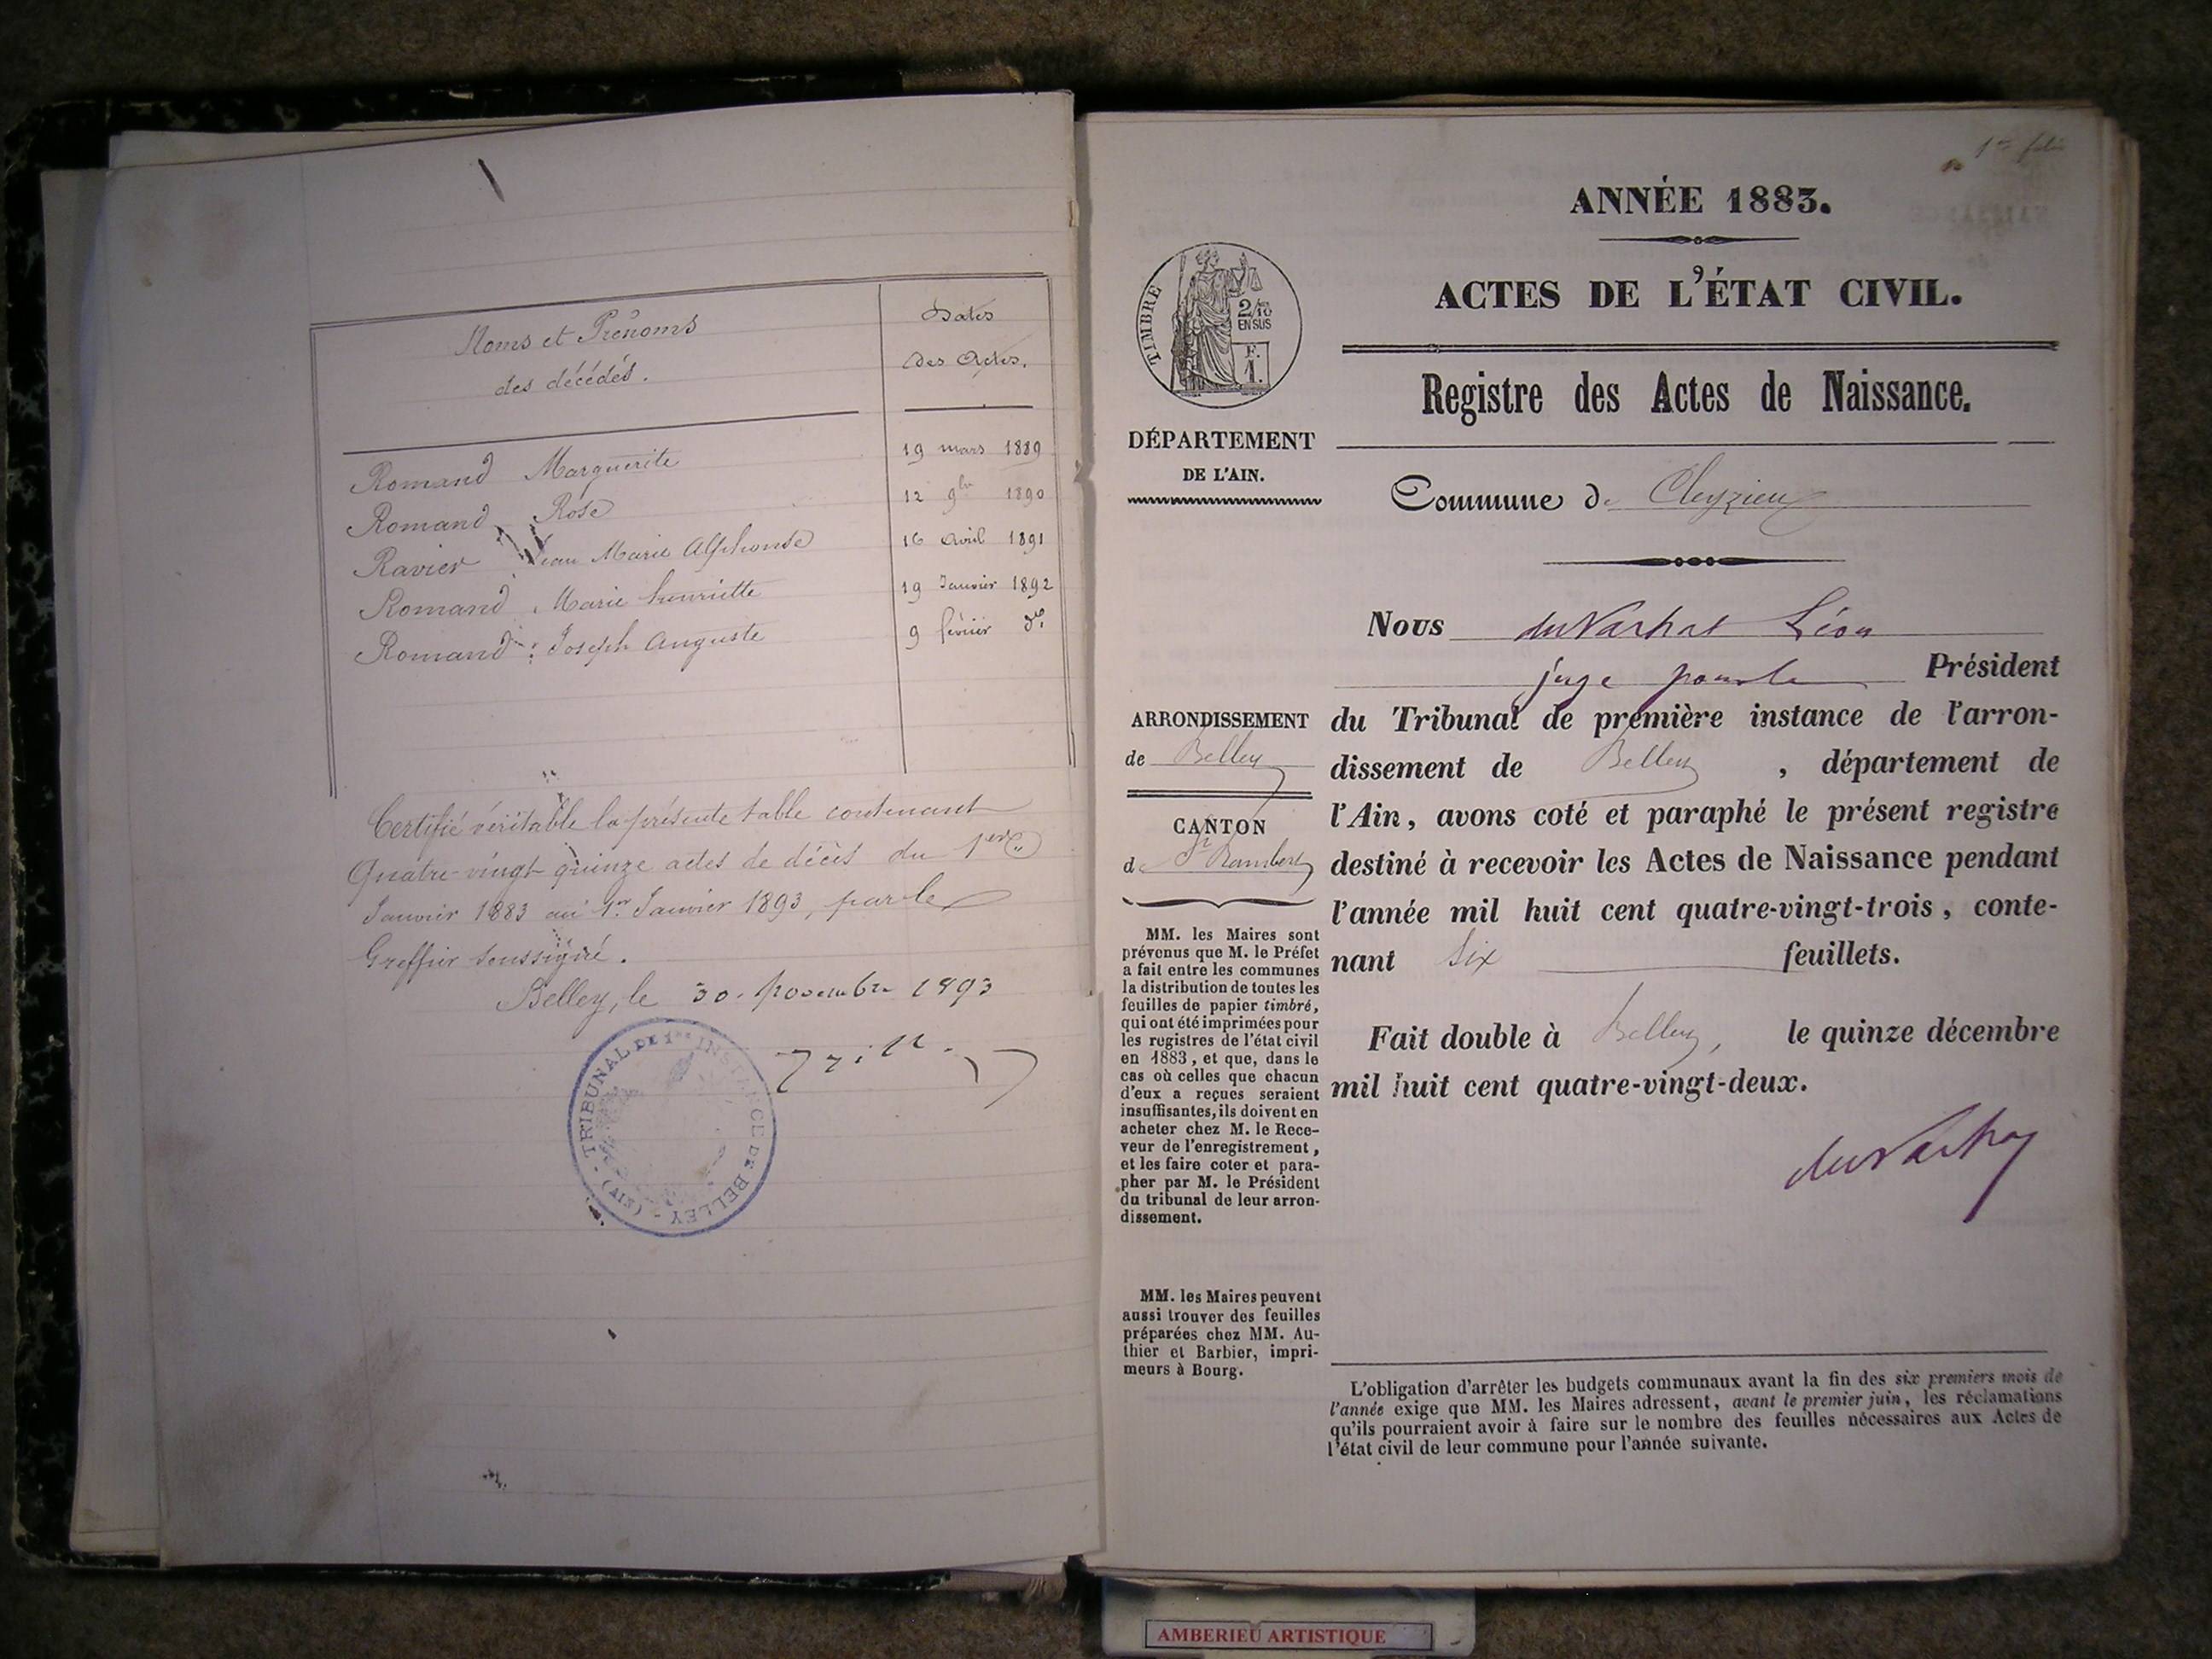 Noms et Prénoms
des décédés.
Dates
des Actes.
Romand Marguerite 19 mars 1889
Romand Rose 12 9bre 1890
Ravier Jean Marie Alphonse 16 Avril 1891
Romand Marie henriette 19 Janvier 1892
Romand Joseph Auguste 9 février do
Certifié véritable la présente table contenant
Quatre-vingt quinze actes de décès du 1er
Janvier 1883 au 1er Janvier 1893, par le
Greffier soussigné.
Belley, le 30 Novembre 1893
TRIBUNAL DE 1re INSTANCE DE BELLEY - (AIN) -
1er folio
ANNÉE 1883.
ACTES DE L'ÉTAT CIVIL.
TIMBRE
2/10
EN SUS
F.
1.
Registre des Actes de Naissance.
DÉPARTEMENT
DE L'AIN.
Commune de Cleyzieu
Nous Léon
juge pour le Président
du Tribunal de première instance de l'arron-
dissement de Belley, département de
l'Ain, avons coté et paraphé le présent registre
destiné à recevoir les Actes de Naissance pendant
l'année mil huit cent quatre-vingt-trois, conte-
nant six feuillets.
Fait double à Belley, le quinze décembre
mil huit cent quatre-vingt-deux.
ARRONDISSEMENT
de Belley
CANTON
de St Rambert
MM. les Maires sont
prévenus que M. le Préfet
a fait entre les communes
la distribution de toutes les
feuilles de papier timbré,
qui ont été imprimées pour
les registres de l'état civil
en 1883, et que, dans le
cas où celles que chacun
d'eux a reçues seraient
insuffisantes, ils doivent en
acheter chez M. le Rece-
veur de l'enregistrement,
et les faire coter et para-
pher par M. le Président
du tribunal de leur arron-
dissement.
MM. les Maires peuvent
aussi trouver des feuilles
préparées chez MM. Au-
thier et Barbier, impri-
meurs à Bourg.
L'obligation d'arrêter les budgets communaux avant la fin des six premiers mois de
l'année exige que MM. les Maires adressent, avant le premier juin, les réclamations
qu'ils pourraient avoir à faire sur le nombre des feuilles nécessaires aux Actes de
l'état civil de leur commune pour l'année suivante.
AMBERIEU ARTISTIQUE